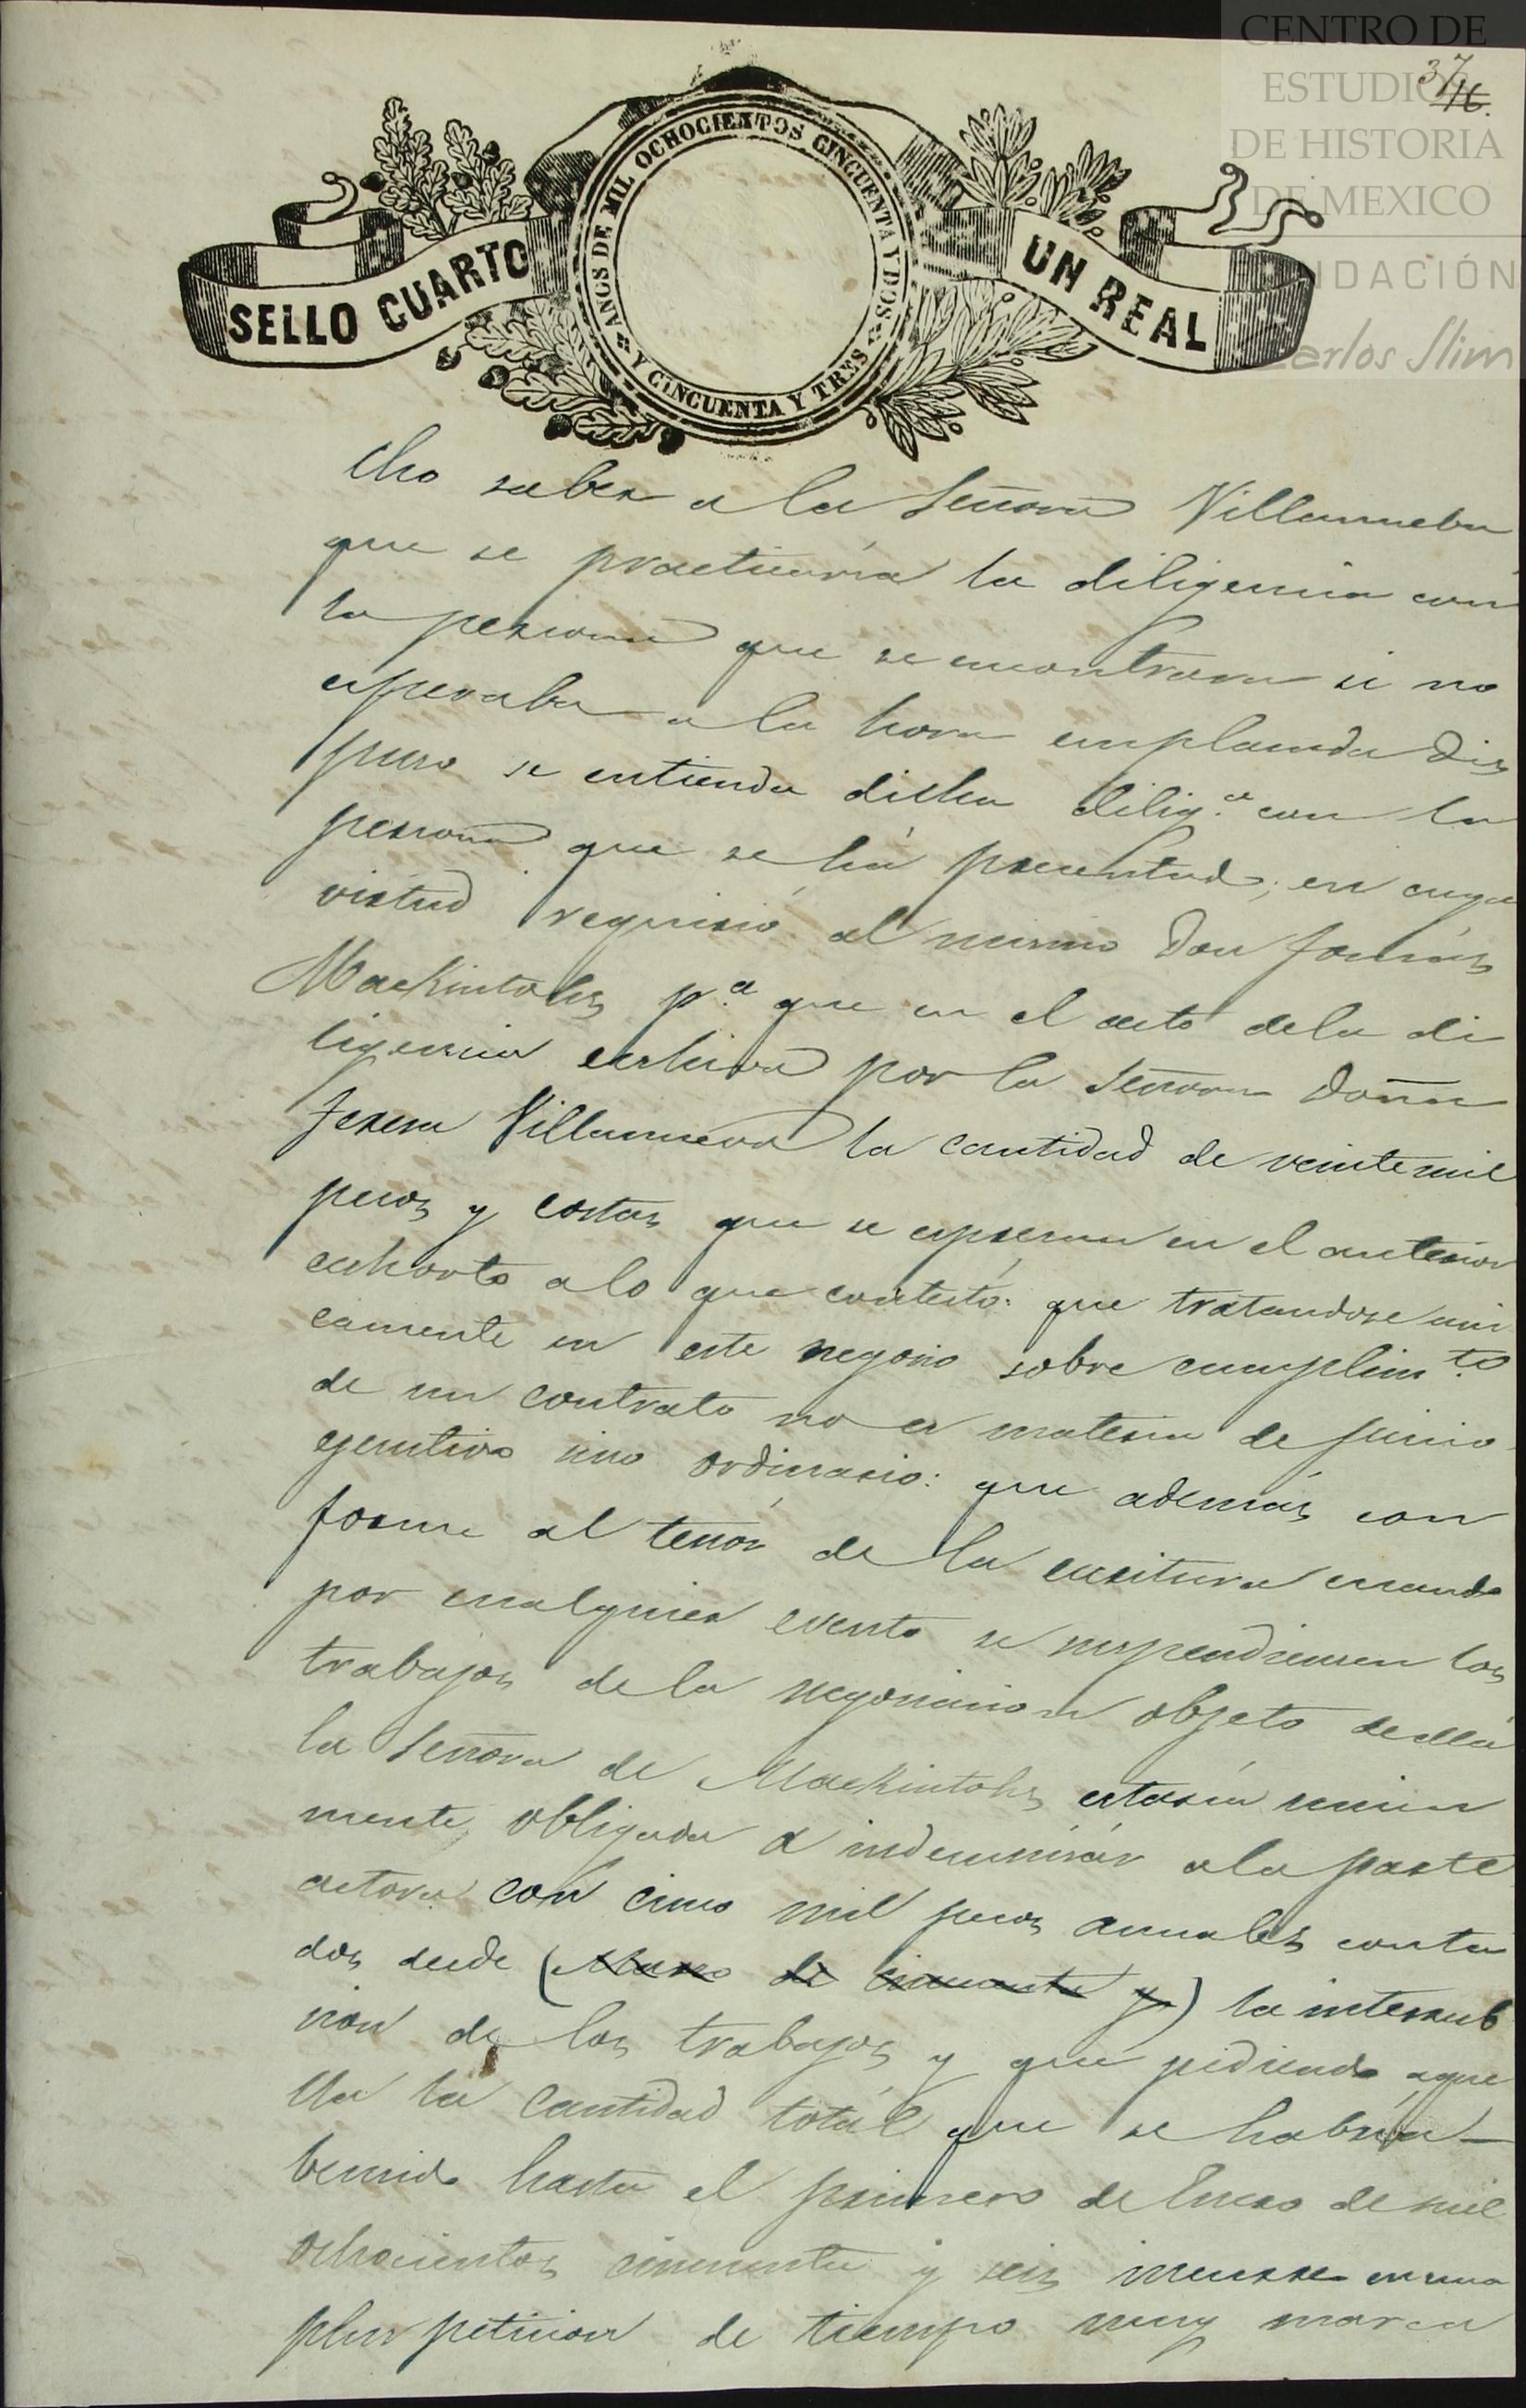 CENTRO DE
ESTUDIOS
DE HISTORIA
DE MEXICO
FUNDACIÓN
Carlos Slim
37
16.
SELLO CUARTO
AÑOS DE MIL OCHOCIENTOS CINCUENTA Y DOS
Y CINCUENTA Y TRES
UN REAL
cho saber a la Señora Villanueba
que se practicaria la diligencia con
la persona que se encontrara si no
esperaba a la hora emplasada dis
puso se entienda dicha dilig.a con la
persona que se há presentado; en cuya
virtud requirió al mismo Don Tomás
Mackintohs p.a que en el acto dela di
ligencia exhiva por la Señora Doña
Teresa Villanueva la cantidad de veinte mil
pesos y costas que se espresan en el anterior
exhorto a lo que contestó: que tratandose uni
camente en este negocio sobre cumplim.to
de un contrato no es materia de juicio
egecutivo sino ordinario: que además con
forme al tenór de la escritura cuando
por cualquier evento se suspendiesen los
trabajos de la negociacion objeto de ella
la Señora de Mackintohs estaria unica
mente obligada á indemnisár a la parte
actora con cinco mil pesos anuales conta
dos desde (Marso de cincuenta y) la interrub
cion de los trabajos y que pidiendo aque
lla la cantidad totál que se habria
bencido hasta el primero de Enero de mil
ochocientos cincuenta y seis incurre en una
plus peticion de tiempo muy marca